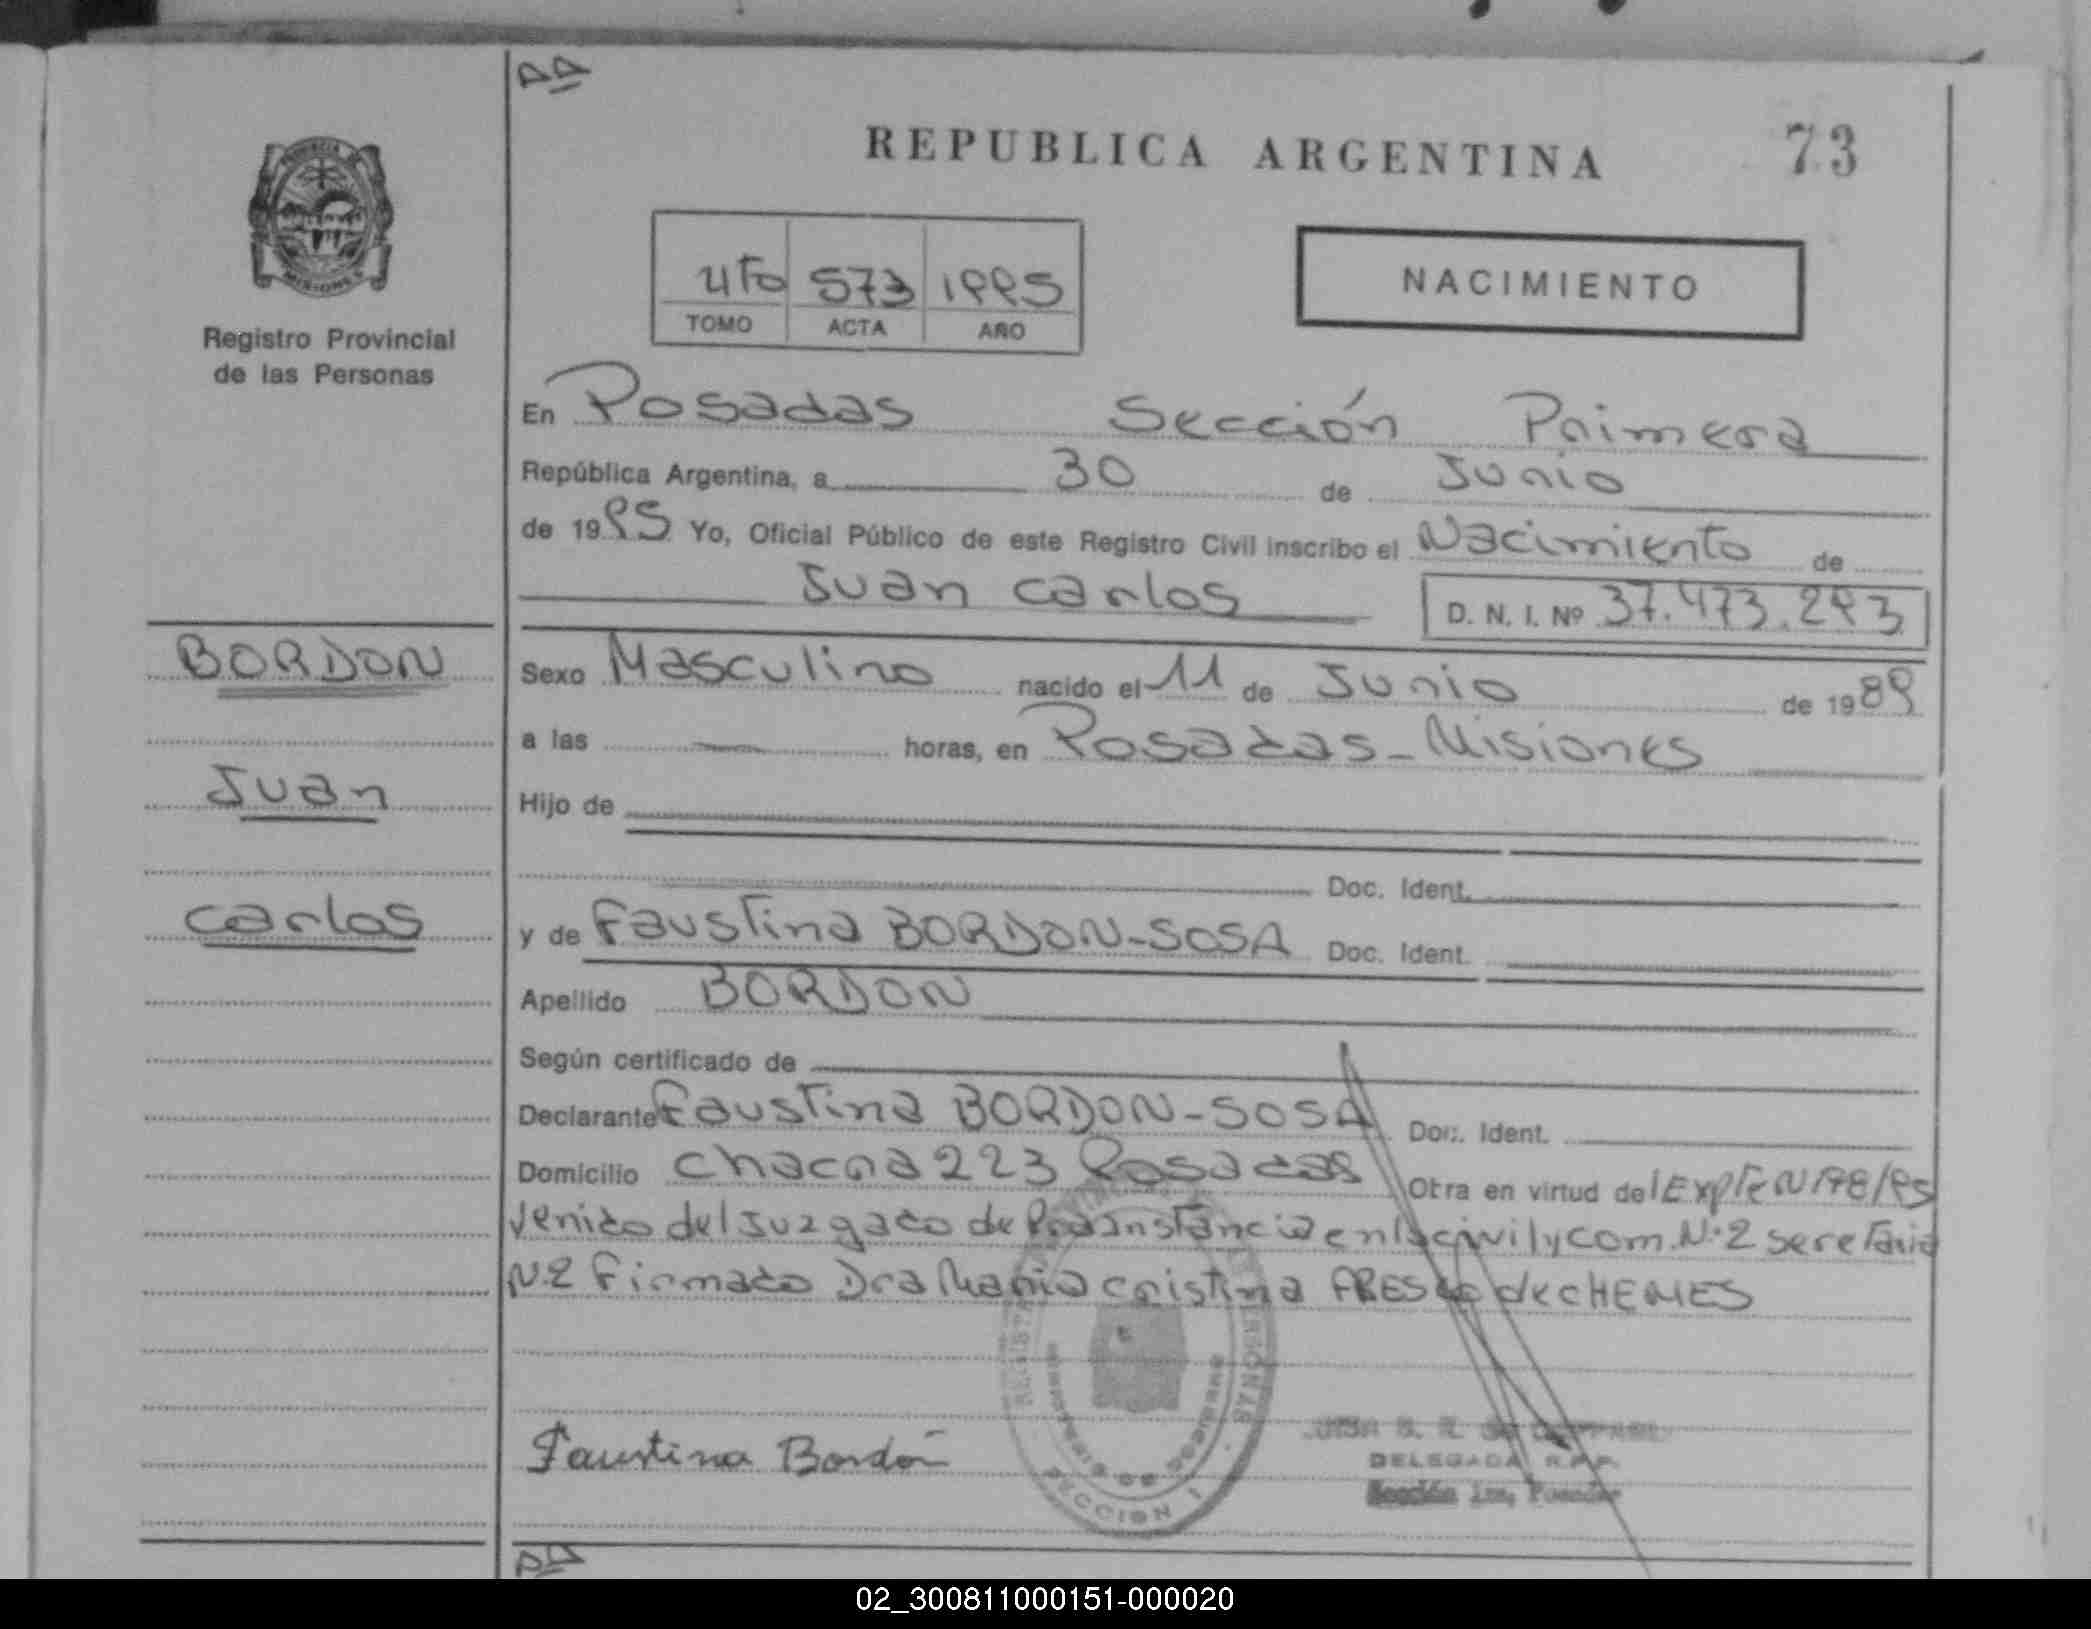 REPUBLICA ARGENTINA
73
PROVINCIA DE
MISIONES
Registro Provincial
de las Personas
4to 573 1995
TOMO ACTA AÑO
NACIMIENTO
En Posadas Sección Primera
República Argentina, a 30 de Junio
de 1995 Yo, Oficial Público de este Registro Civil inscribo el Nacimiento de
Juan Carlos D. N. I. Nº 37.473.293
BORDON
Juan
Carlos
Sexo Masculino nacido el 11 de Junio de 1989
a las — horas, en Posadas - Misiones
Hijo de
Doc. Ident.
y de Faustina BORDON-SOSA Doc. Ident.
Apellido BORDON
Según certificado de
Declarante Faustina BORDON-SOSA Doc. Ident.
Domicilio Chacra 223 Posadas Otra en virtud del Expte N 178/95
venido del Juzgado de Pra Instancia en lo civil y com. N.2 seretaria
N.2 Firmado Dra Maria Cristina FRESCO de CHEMES
Faustina Bordón
SECCION 1
DELEGADA R.P.P.
Sección 1ra, Posadas
02_300811000151-000020